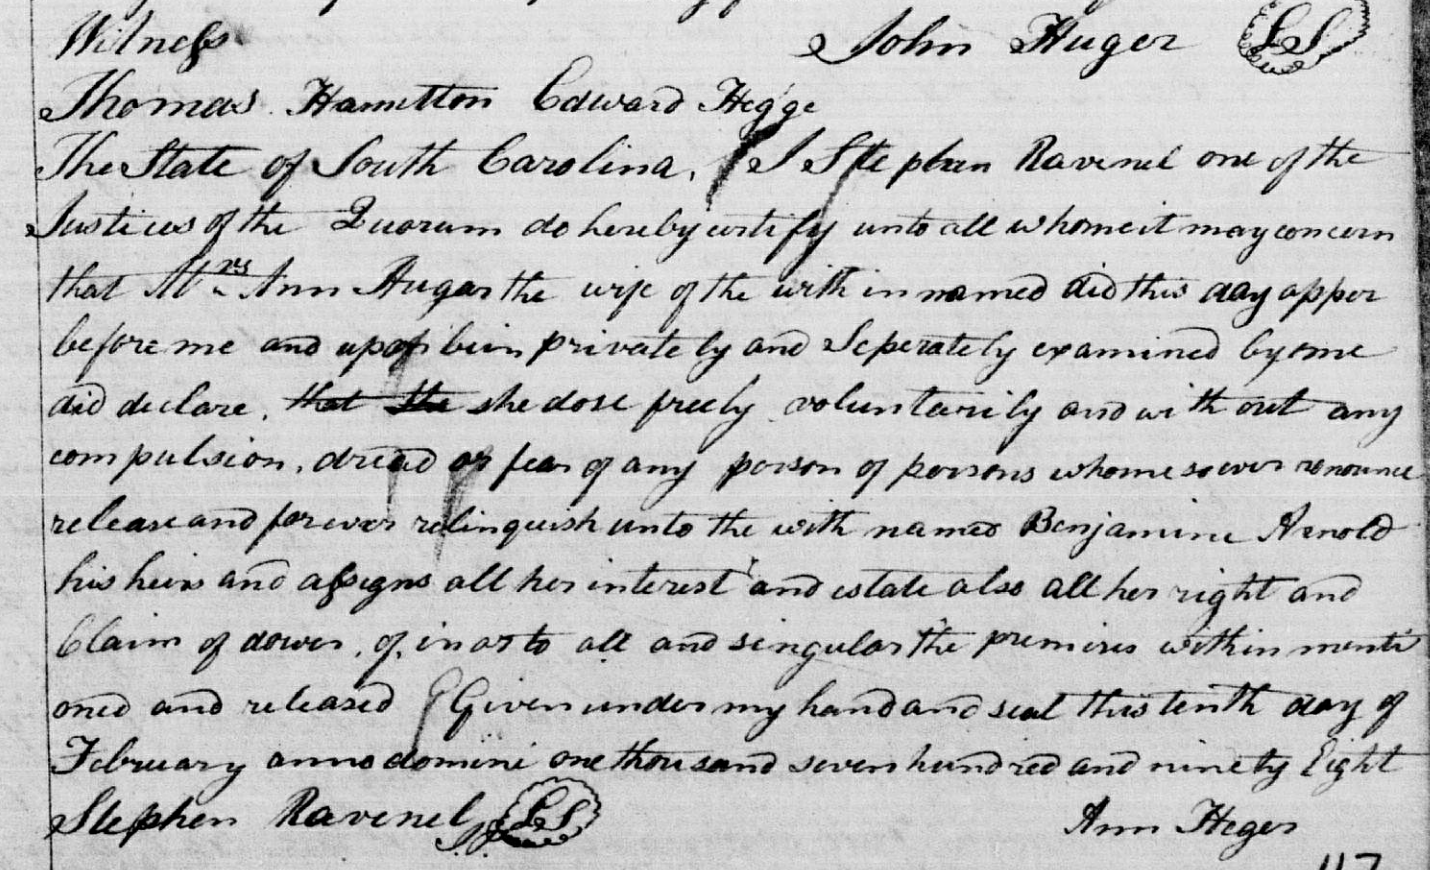 Witness John Huger LS
Thomas Hamelton Edward Hegge
The State of South Carolina, I Stephen Ravenel one of the
Justices of the Quorum do hereby certify unto all whome it may concern
that Mrs Ann Hugar the wife of the with in named did this day apper
before me and upon bein privately and Seperately examined by me
did declare, that she she dose freely voluntarily and with out any
compulsion, dread or fear of any person of persons whomesoever renounce
release and forever relinquish unto the with named Benjamine Arnold
his heirs and assigns all her interest and estate also all her right and
Claim of dower, of, in or to all and singular the premises within menti
oned and released Given under my hand and seal this tenth day of
February anno domini one thousand seven hundred and ninety Eight
Stephen Ravenel LS Ann Heger